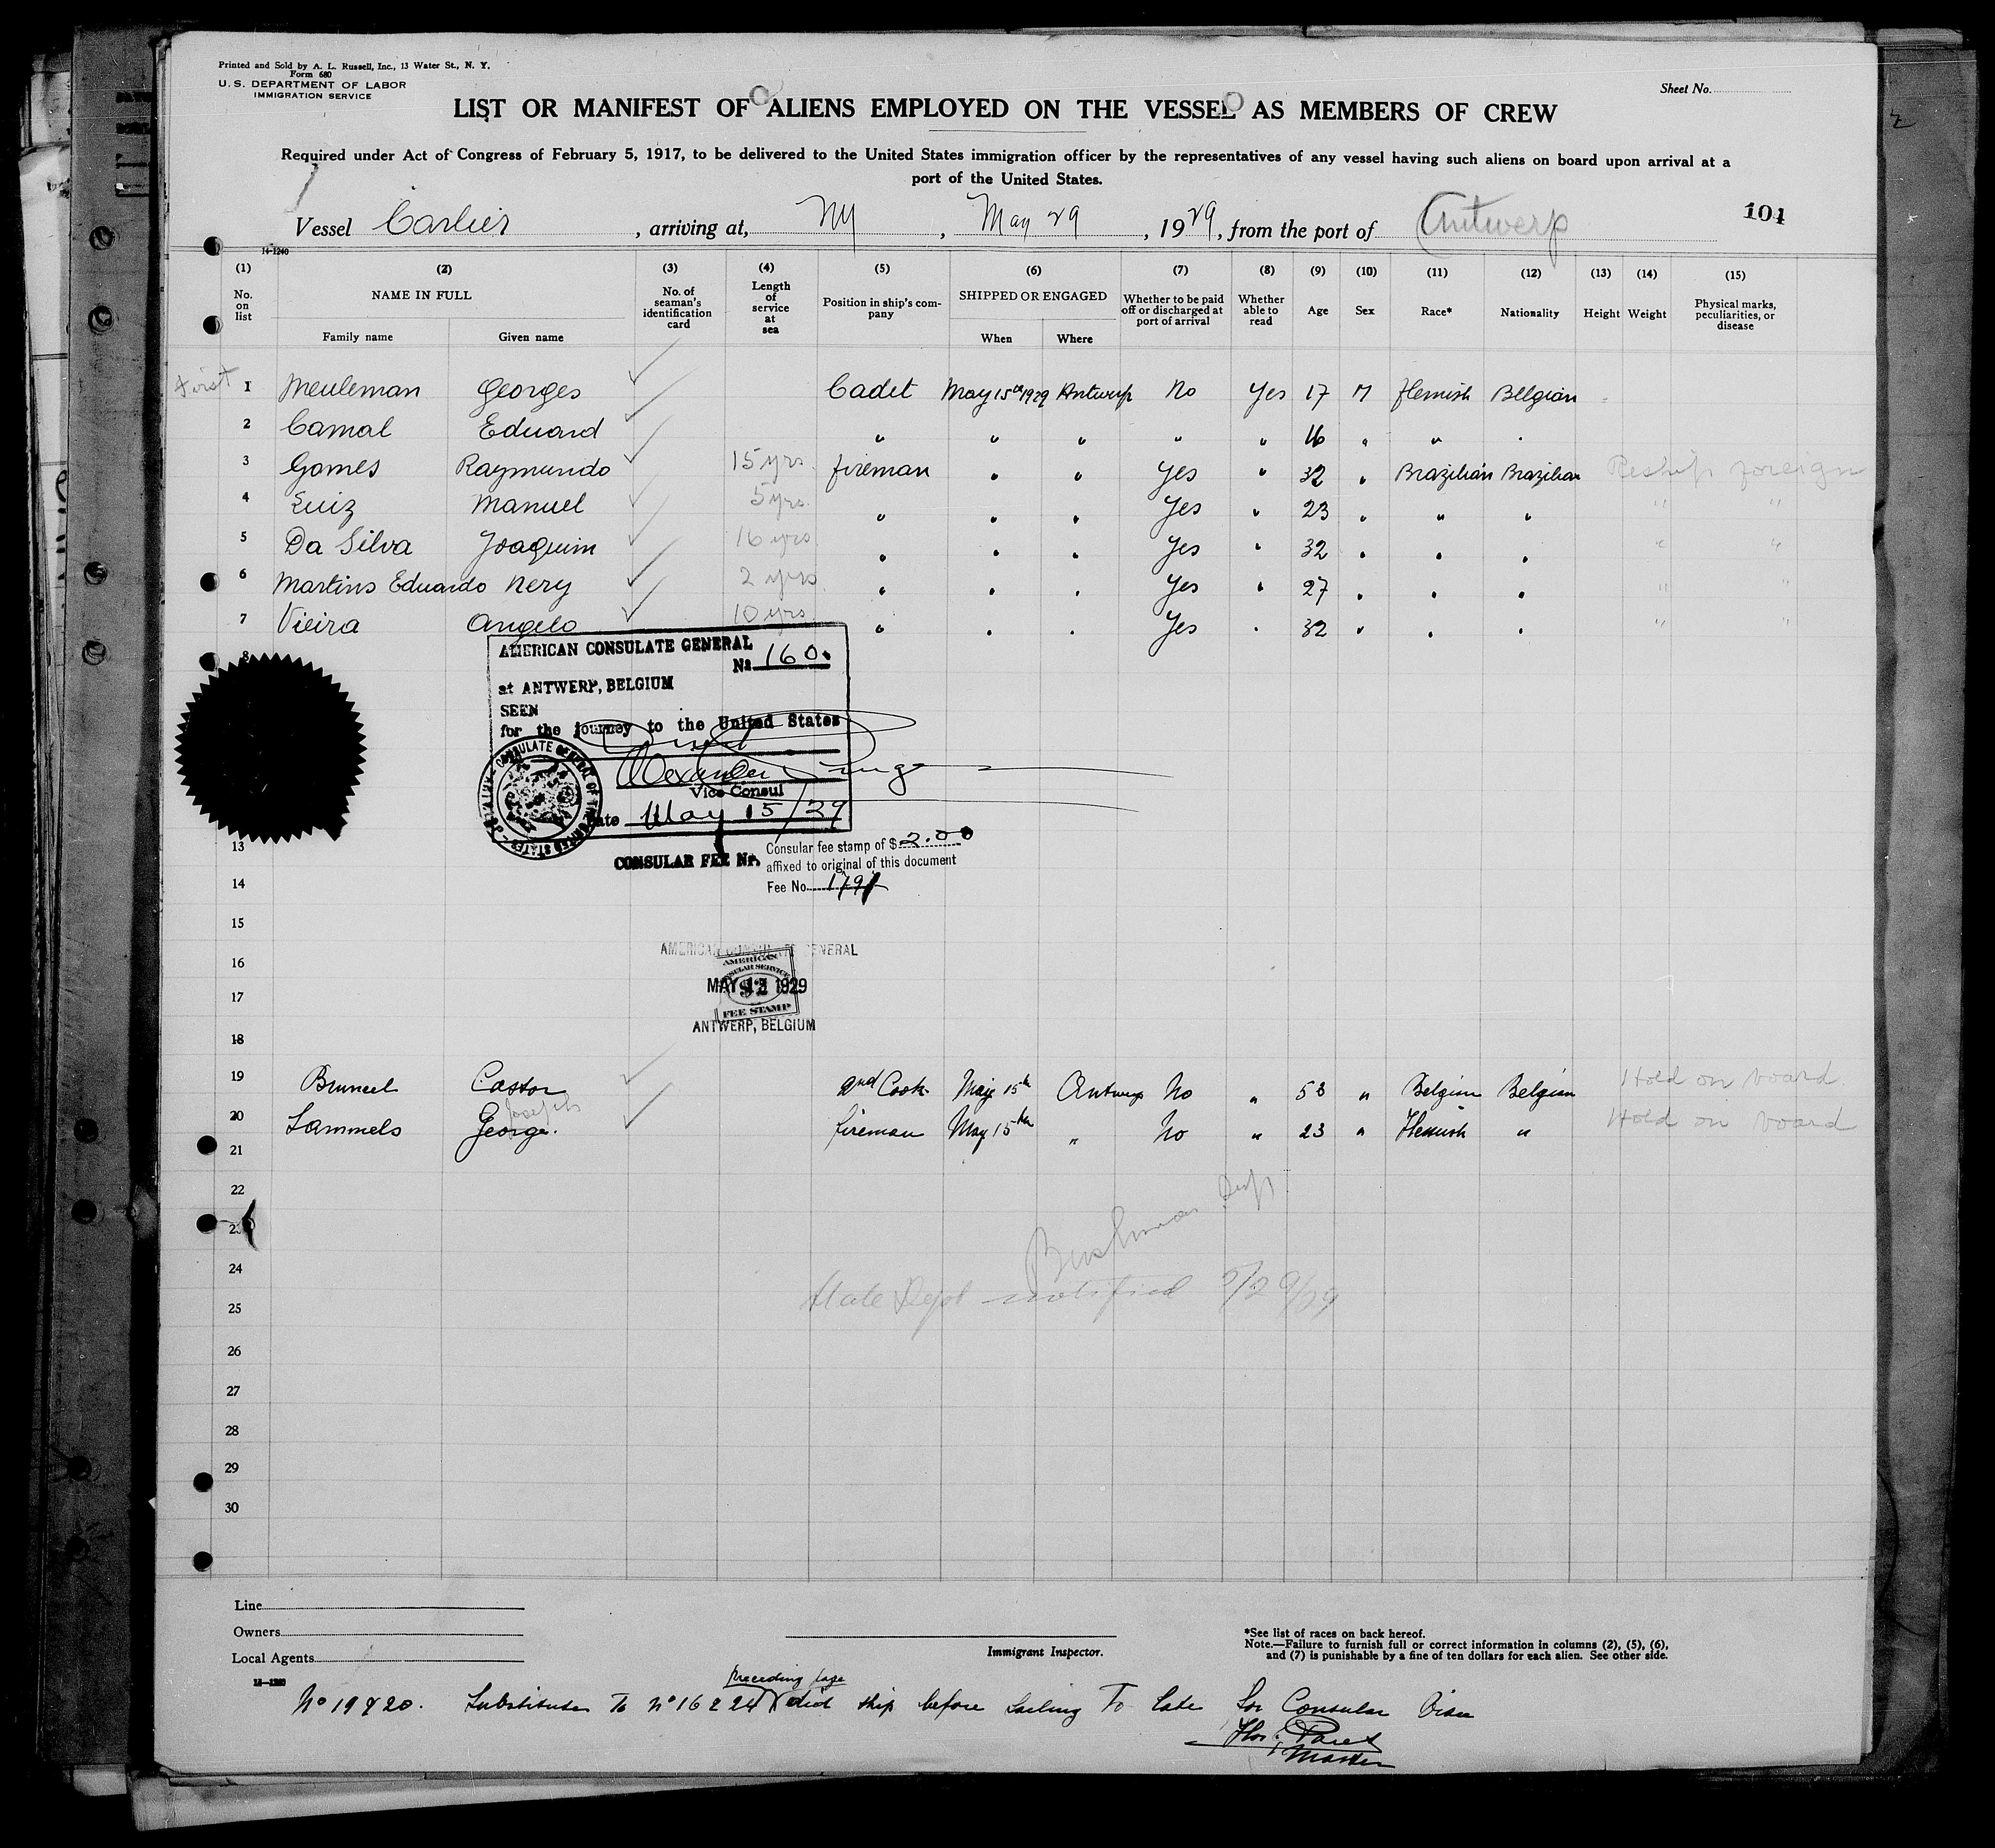 Printed and Sold by A. L. Russell, Inc., 13 Water St., N. Y.
Form 680
U. S. DEPARTMENT OF LABOR
IMMIGRATION SERVICE
Sheet No.
LIST OR MANIFEST OF ALIENS EMPLOYED ON THE VESSEL AS MEMBERS OF CREW
Required under Act of Congress of February 5, 1917, to be delivered to the United States immigration officer by the representatives of any vessel having such aliens on board upon arrival at a
port of the United States.
Vessel Carlier, arriving at, NY, May 29, 1929, from the port of Antwerp 101
14-1240
(1) (2) (3) (4) (5) (6) (7) (8) (9) (10) (11) (12) (13) (14) (15)
No. on list NAME IN FULL Family name Given name No. of seaman's identification card Length of service at sea Position in ship's company SHIPPED OR ENGAGED When Where Whether to be paid off or discharged at port of arrival Whether able to read Age Sex Race* Nationality Height Weight Physical marks, peculiarities, or disease
first 1 Meuleman Georges Cadet May 15th 1929 Antwerp No Yes 17 M Flemish Belgian
2 Camal Eduard " " " " " 16 " " "
3 Gomes Raymundo 15 yrs. fireman " " Yes " 32 " Brazilian Brazilian Reship foreign
4 Luiz Manuel 5 yrs. " " " Yes " 23 " " " " "
5 Da Silva Joaquim 16 yrs. " " " Yes " 32 " " " " "
6 Martins Eduardo Nery 2 yrs " " " Yes " 27 " " " " "
7 Vieira Angelo 10 yrs. " " " Yes " 32 " " " " "
8
AMERICAN CONSULATE GENERAL
No 160
at ANTWERP, BELGIUM
SEEN
for the journey to the United States
Alexander
Vice Consul
Date May 15/29
CONSULAR FEE Nr.
Consular fee stamp of $ 2.00
affixed to original of this document
Fee No.
13
14
15
16
17
18
AMERICAN CONSULATE GENERAL
AMERICAN CONSULAR SERVICE
MAY 1929
FEE STAMP
ANTWERP, BELGIUM
19 Bruneel Castor 2nd Cook May 15th Antwerp No " 53 " Belgian Belgian Hold on board
20 Lammels George. Joseph fireman May 15th " No " 23 " Flemish " Hold on board
21
22
23
24
25
26
27
28
29
30
Bushman Dept
State Dept notified 5/29/29
Line
Owners
Local Agents
Immigrant Inspector.
*See list of races on back hereof.
Note.—Failure to furnish full or correct information in columns (2), (5), (6),
and (7) is punishable by a fine of ten dollars for each alien. See other side.
14-1240
preceding page
No 19 & 20. Substitutes To No 16 & 24 did ship before sailing To late for Consular Visa
Master